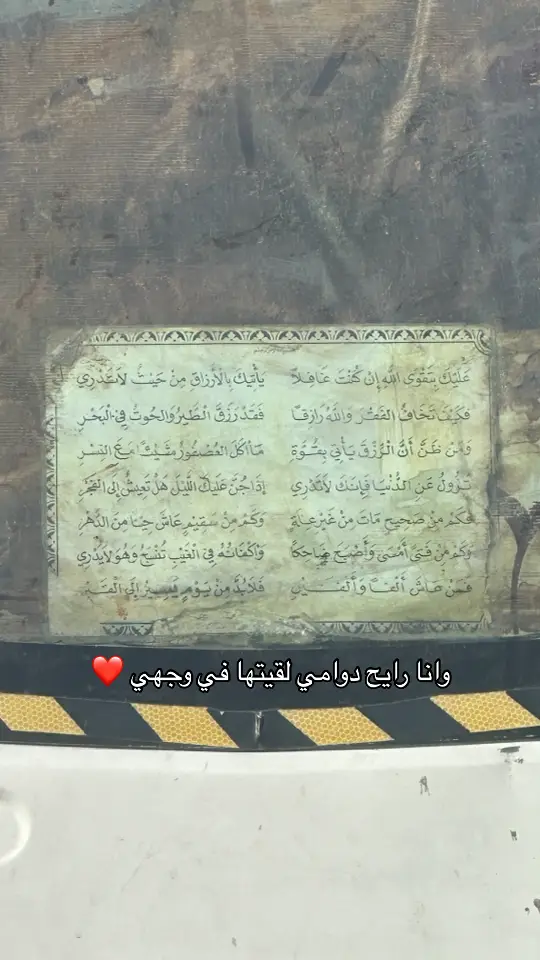 عَلَيْكَ بِتَقْوَى اللهِ إِنْ كُنْتَ غَافِلاً يَأْتِيكَ بِالْأَرْزَاقِ مِنْ حَيْثُ لَا تَدْرِي
فَكَيْفَ تَخَافُ الْفَقْرَ وَاللهُ رَازِقًا فَقَدْ رَزَقَ الطَّيْرَ وَالْحُوتَ فِي الْبَحْرِ
وَمَنْ ظَنَّ أَنَّ الرِّزْقَ يَأْتِي بِقُوَّةٍ مَا أَكَلَ الْعُصْفُورُ شَيْئًا مَعَ النِّسْرِ
تَزُولُ عَنِ الدُّنْيَا فَإِنَّكَ لَا تَدْرِي إِذَا جُنَّ عَلَيْكَ اللَّيْلُ هَلْ تَعِيشُ إِلَى الْفَجْرِ
فَكَمْ مِنْ صَحِيحٍ مَاتَ مِنْ غَيْرِ عِلَّةٍ وَكَمْ مِنْ سَقِيمٍ عَاشَ حِينًا مِنَ الدَّهْرِ
وَكَمْ مِنْ فَتًى أَمْسَى وَأَصْبَحَ ضَاحِكًا وَأَكْفَانُهُ فِي الْغَيْبِ تُنْسَجُ وَهُوَ لَا يَدْرِي
فَمَنْ عَاشَ أَلْفًا وَأَلْفَيْنِ فَلَابُدَّ مِنْ يَوْمٍ يَسِيرُ إِلَى الْقَبْرِ
وانا رايح دوامي لقيتها في وجهي ❤️